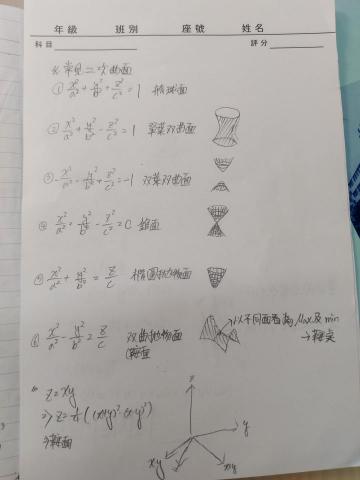 年級 班別 座號 姓名
科目 評分
常見二次曲面
① x²/a² + y²/b² + z²/c² = 1 橢球面
② x²/a² + y²/b² - z²/c² = 1 單葉双曲面
③ -x²/a² - y²/b² + z²/c² = -1 双葉双曲面
④ x²/a² + y²/b² - z²/c² = 0 錐面
⑤ x²/a² + y²/b² = z/c 橢圓拋物面
⑥ x²/a² - y²/b² = z/c 双曲拋物面 以不同面看為 Max 及 min
(鞍面 → 鞍点
z = xy
⇒ z = ¼((x+y)² - (x-y)²)
⇒ 鞍面
z
y
x-y
x+y